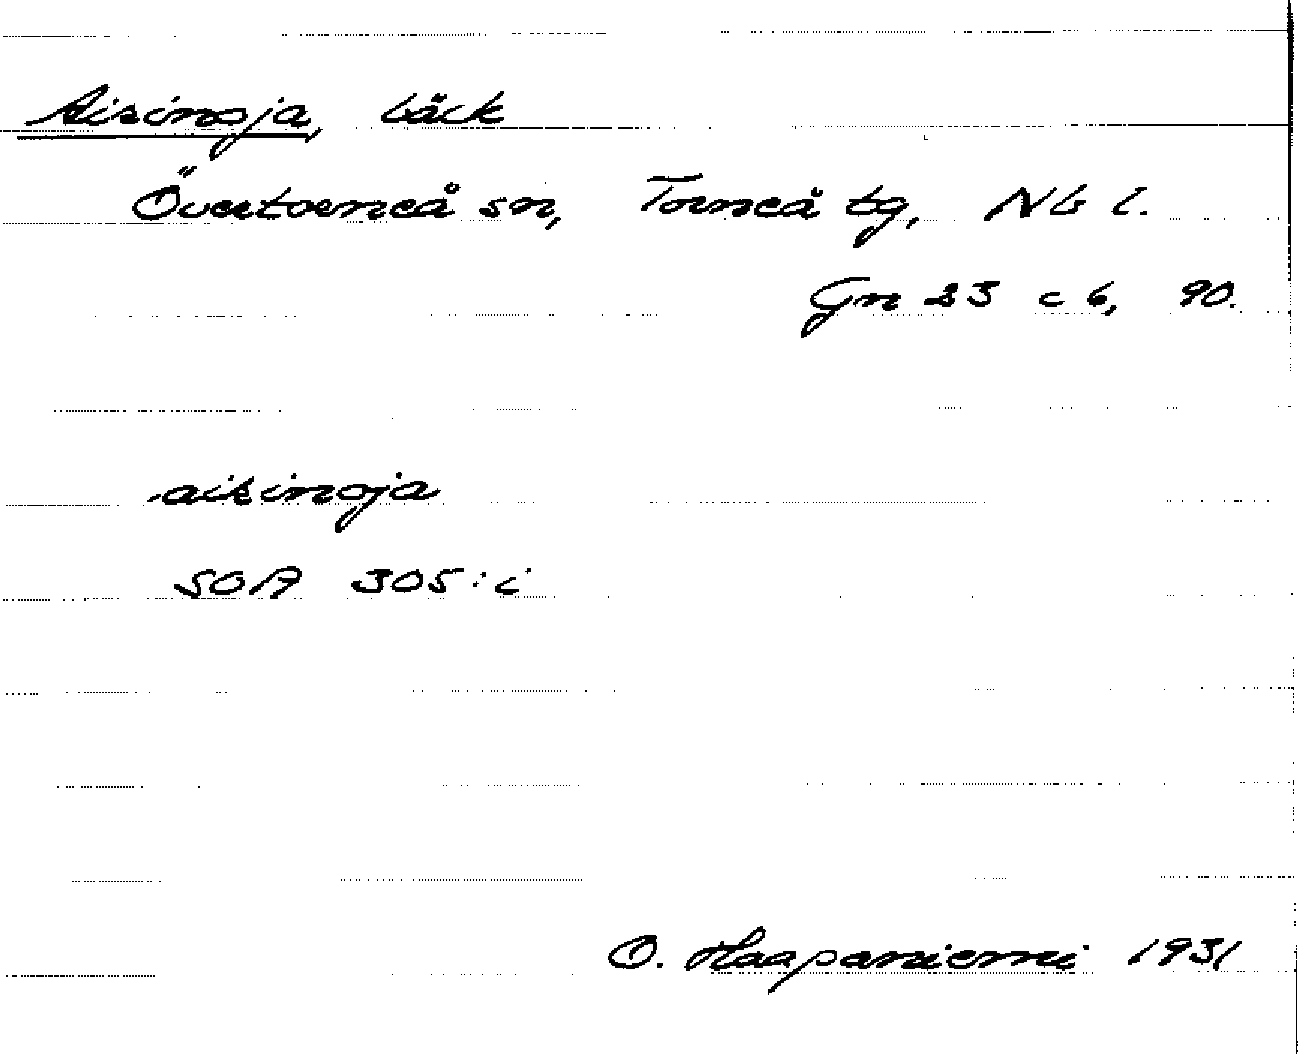 Aisinoja, bäck
Övertorneå sn, Torneå tg, Nb l.
Gn 23 c 6, 90.
aisinoja
SOA 305:i
O. Haapaniemi 1931